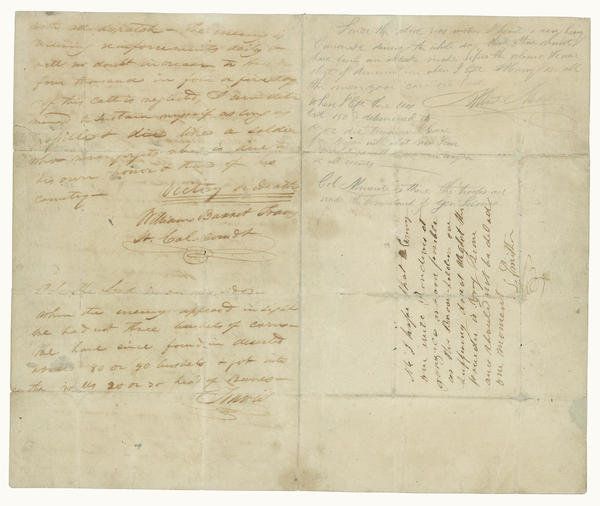 with all dispatch – The enemy is
receiving reinforcements daily &
will no doubt increase to three or
four thousand in four or five days.
If this call is neglected, I am deter
mined to sustain myself as long as
possible & die like a soldier
who never forgets what is due to
his own honor & that of his
country –
Victory or Death
William Barret Travis
Lt. Col. comdt
P.S. The Lord is on our side –
When the enemy appeared in sight
we had not three bushels of corn –
We have since found in deserted
houses 80 or 90 bushels & got into
the walls 20 or 30 head of Beeves –
Travis
Since the above was written I heard a very heavy
Canonade during the whole day think there must
have been an attack made upon the alamo We were
short of Ammunition when I left Hurry on all
the men you can in haste
Albert Martin
When I left there was
but 150 determined to
do or die tomorrow I leave
for Bejar with what men I can
at all events
Col Almonte is there the troops are
under the Command of Gen
Nb I hope that Every
one will Rendeves at
gonzales as soon poseble
as the Brave Soldiers are
suffering do not neglect the
powder. is very scarce
and should not be delad
one moment
L. Smither